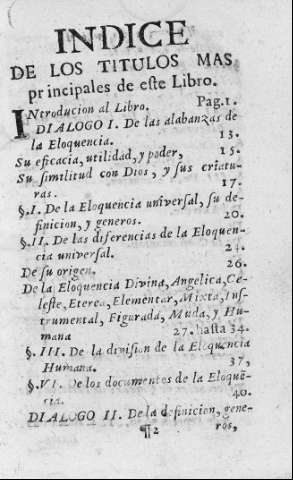 INDICE
DE LOS TITULOS MAS
principales de este Libro.
INtroducion al Libro. Pag. 1.
DIALOGO I. De las alabanzas de
la Eloquencia. 13.
Su eficacia, utilidad, y poder, 15.
Su similitud con Dios, y sus criatu-
ras. 17.
§. I. De la Eloquencia universal, su de-
finicion, y generos. 20.
§. II. De las diferencias de la Eloquen-
cia universal. 24.
De su origen. 26.
De la Eloquencia Divina, Angelica, Ce-
leste, Eterea, Elementar, Mixta, Ins-
trumental, Figurada, Muda, y Hu-
mana 27. hasta 34.
§. III. De la division de la Eloquencia
Humana. 37,
§. VI. De los documentes de la Eloquē-
cia. 40.
DIALOGO II. De la definicion, gene-
¶2 ros,